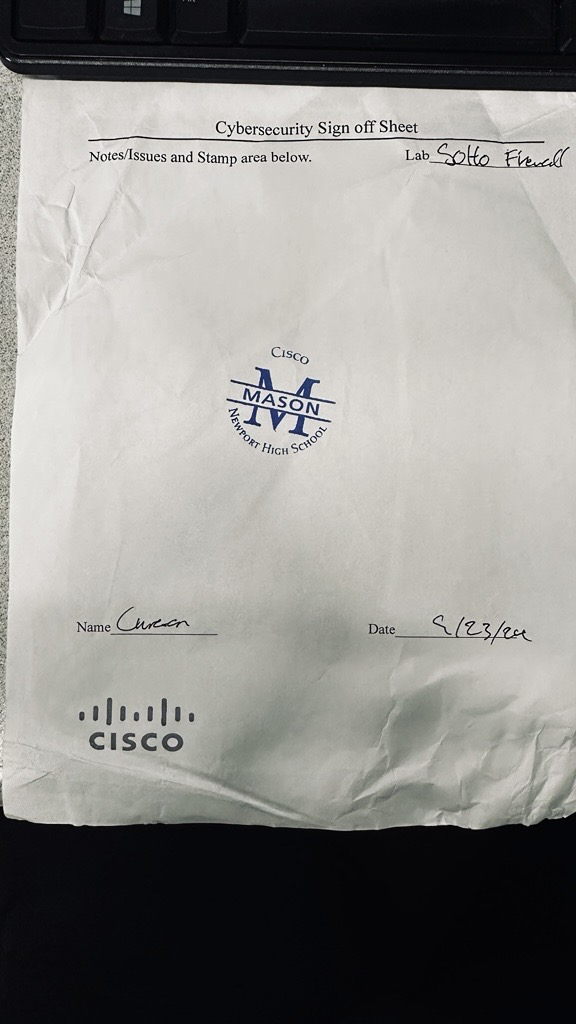 Cybersecurity Sign off Sheet
Notes/Issues and Stamp area below. Lab
CISCO
MASON
NEWPORT HIGH SCHOOL
Name
Date
CISCO